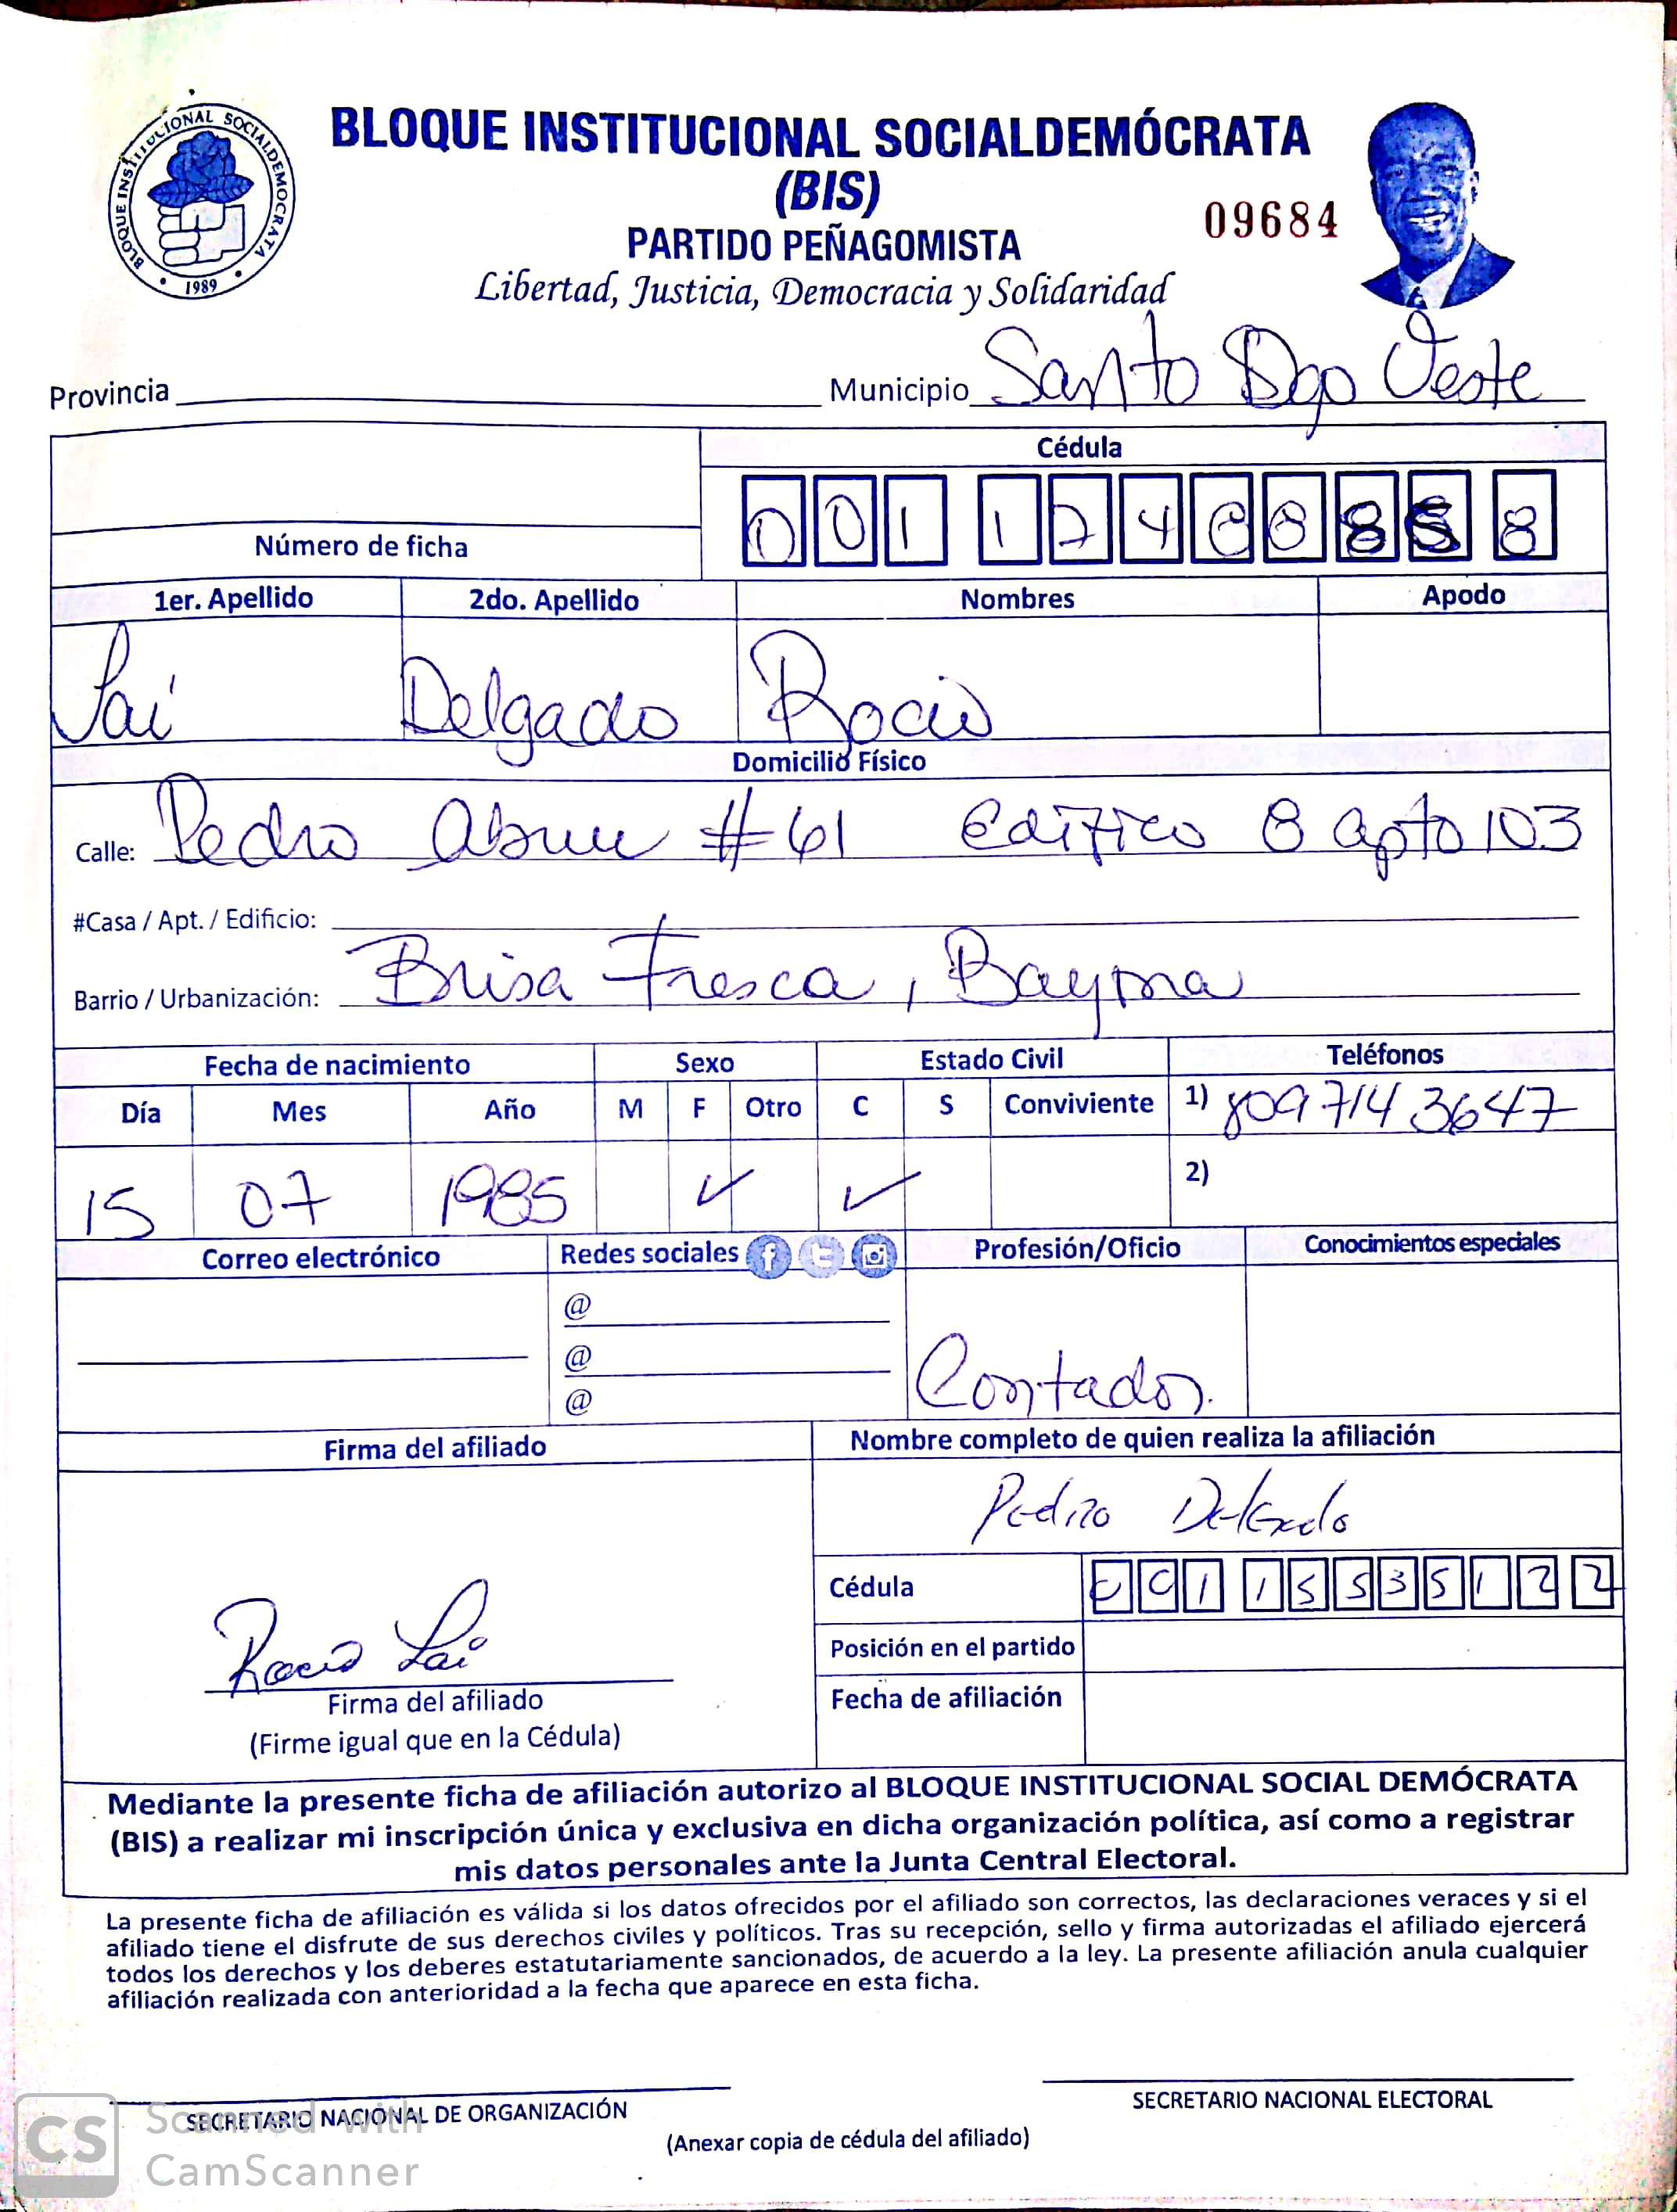 BLOQUE INSTITUCIONAL SOCIALDEMOCRATA
1989
BLOQUE INSTITUCIONAL SOCIALDEMÓCRATA
(BIS)
09684
PARTIDO PEÑAGOMISTA
Libertad, Justicia, Democracia y Solidaridad
Provincia Municipio Santo Dgo Oeste
Cédula
001 1 2 4 0 8 8 8
Número de ficha
1er. Apellido 2do. Apellido Nombres Apodo
Sai Delgado Rocio
Domicilio Físico
Calle: Pedro #61 Edifico 8 apto 103
#Casa / Apt. / Edificio:
Barrio / Urbanización: Brisa Fresca, Bayona
Fecha de nacimiento Sexo Estado Civil Teléfonos
Día Mes Año M F Otro C S Conviviente 1) 809 714 3647
15 07 1985 ✓ ✓ 2)
Correo electrónico Redes sociales Profesión/Oficio Conocimientos especiales
@
@
@
Contador.
Firma del afiliado Nombre completo de quien realiza la afiliación
Pedro Delgado
Cédula 001 1553512 2
Posición en el partido
Rocio Sai
Firma del afiliado Fecha de afiliación
(Firme igual que en la Cédula)
Mediante la presente ficha de afiliación autorizo al BLOQUE INSTITUCIONAL SOCIAL DEMÓCRATA
(BIS) a realizar mi inscripción única y exclusiva en dicha organización política, así como a registrar
mis datos personales ante la Junta Central Electoral.
La presente ficha de afiliación es válida si los datos ofrecidos por el afiliado son correctos, las declaraciones veraces y si el
afiliado tiene el disfrute de sus derechos civiles y políticos. Tras su recepción, sello y firma autorizadas el afiliado ejercerá
todos los derechos y los deberes estatutariamente sancionados, de acuerdo a la ley. La presente afiliación anula cualquier
afiliación realizada con anterioridad a la fecha que aparece en esta ficha.
SECRETARIO NACIONAL DE ORGANIZACIÓN SECRETARIO NACIONAL ELECTORAL
(Anexar copia de cédula del afiliado)
CS Scanned with
CamScanner